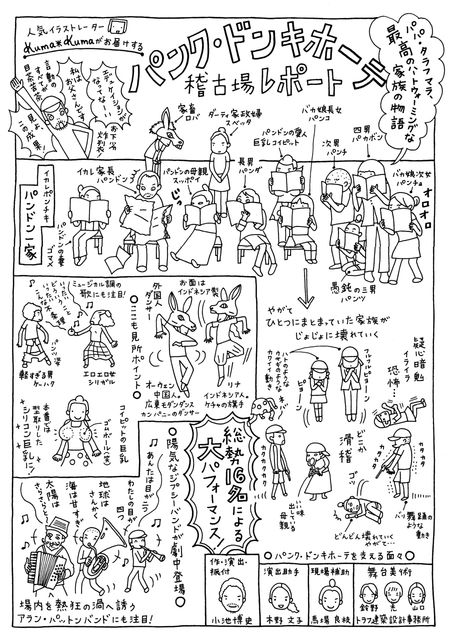 人気イラストレーター
Kuma*Kumaがお届けする
パンク・ドンキホーテ
稽古場レポート
パパ・タラフマラ、
最高のハートウォーミングな
家族の物語
私がお父さんなんです
見よ、
家畜
ロバ
ダーティ家政婦
スペッタ
バカ娘長女
パンコ
パンドンの愛人
巨乳コイピット
四男
パカポン
次男
パンチ
バカ娘次女
パンチョ
イカレ家長
パンドン
パンドンの母親
スッポイ
長男
パンダ
じっ
オロオロ
パンドン一家
パンドンの妻
ゴマメ
愚鈍の三男
パンツ
やがて
ひとつにまとまっていた家族が
じょじょに壊れていく
ミュージカル調の
歌にも注目!
軽すぎる男
ケーハク
エロエロ女
シリガル
ここも見所ポイント!
外国人
ダンサー
お面は
インドネシア製
オーウェン
中国人。
広東モダンダンス
カンパニーのダンサー
リナ
インドネシア人。
ケチャの旗手
疑心暗鬼
イライラ
恐怖…
ハトのような
カワイイ動き
ピョーン
コイピットの巨乳
ゴムボール(笑)
本番では
型取りした
シリコン巨乳に!
総勢16名による
大パフォーマンス!
カタカタ
どこか
滑稽
ゴッ
カタカタ
いい味
出てる
母親
バリ舞踊の
ような
動き
どんどん壊れていく
やがて…
陽気なジプシーバンドが劇中登場
あんたは目が二つ
わたしの目が
四つ
地球は
さんかく
海は甘すぎ
太陽は
さらさらと
場内を熱狂の渦へ誘う
アラン・パットンバンドにも注目!
パンク・ドンキホーテを支える面々
作・演出・
振付
小池博史
演出助手
木野文子
現場補助
馬場良枝
舞台美術
鈴野
禿
山口
トラフ建築設計事務所